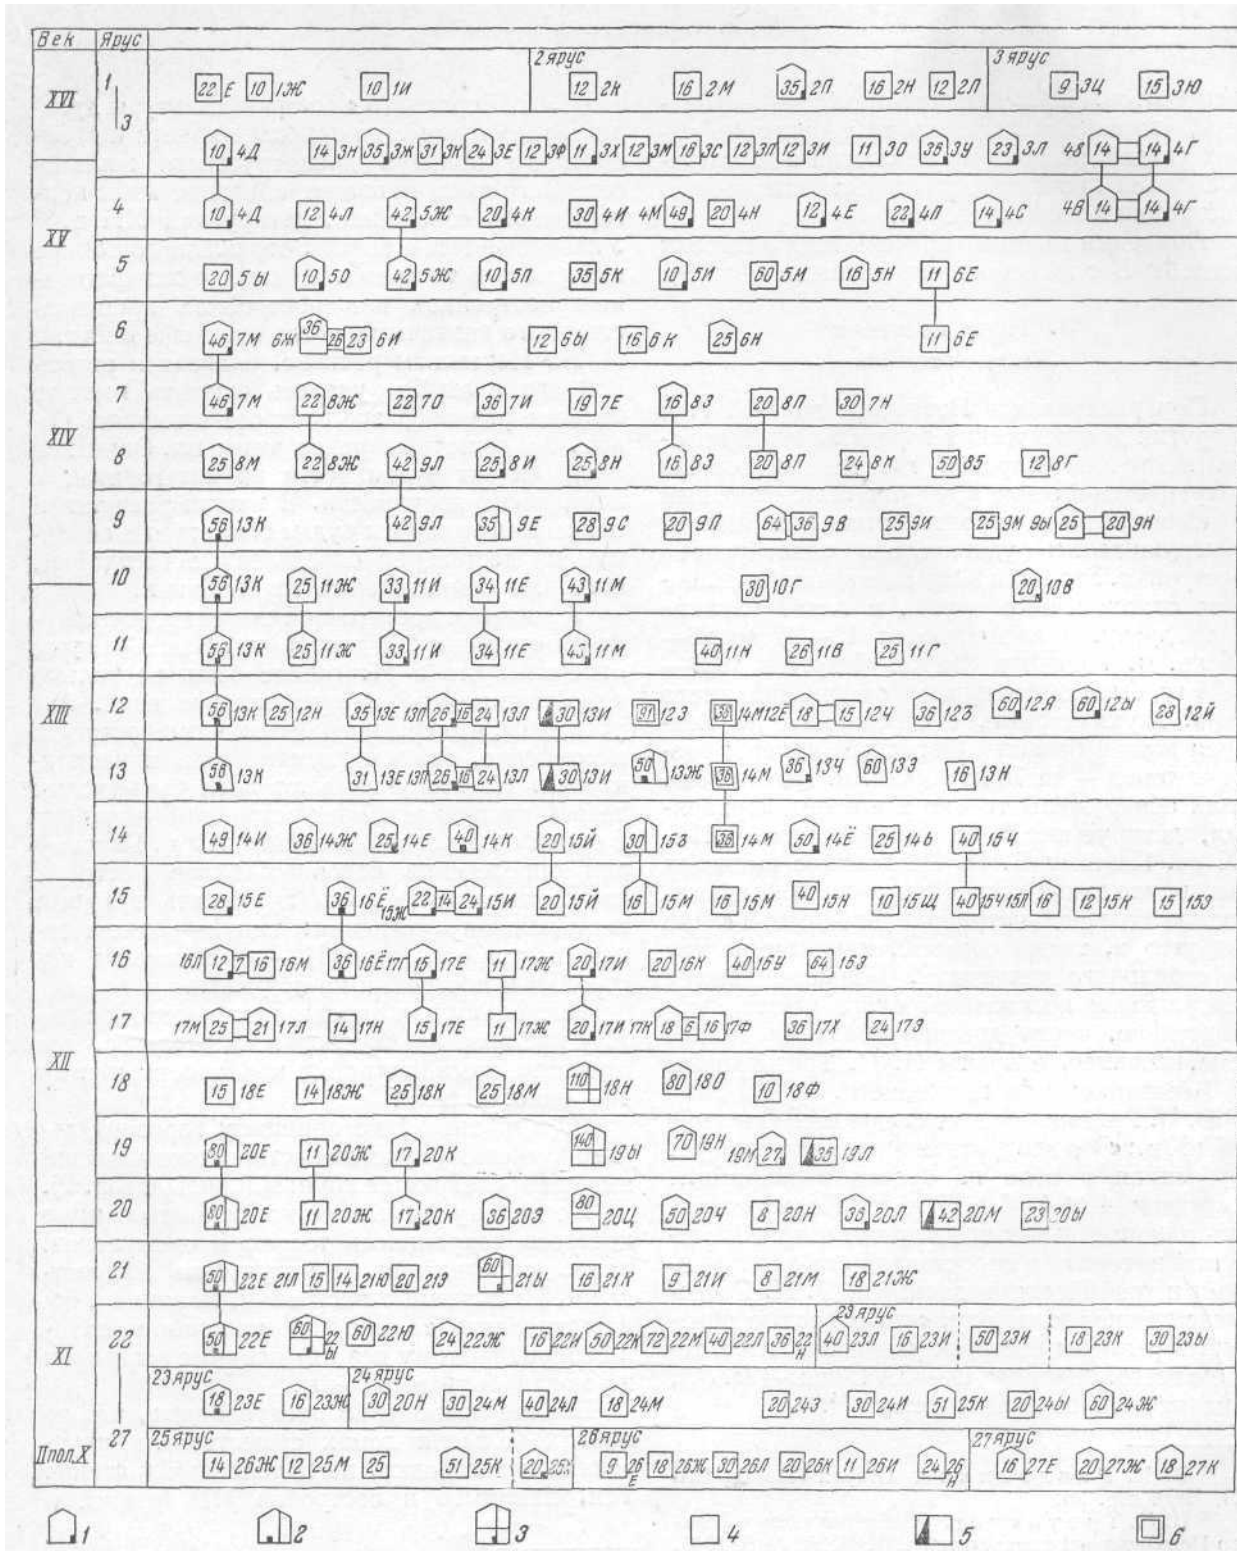 Век Ярус
2 ярус 3 ярус
XVI 1 22 Е 10 1Ж 10 1И 12 2К 16 2М 35 2П 16 2Н 12 2Л 9 3Ц 15 3Ю
3 10 4Д 14 3Н 35 3Ж 31 3К 24 3Е 12 3Ф 11 3Х 12 3М 16 3С 12 3П 12 3И 11 3О 36 3У 23 3Л 4В 14 14 4Г
4 10 4Д 12 4Л 42 5Ж 20 4К 30 4И 4М 49 20 4Н 12 4Е 22 4П 14 4С 4В 14 14 4Г
XV
5 20 5Ы 10 5О 42 5Ж 10 5П 35 5К 10 5И 60 5М 16 5Н 11 6Е
6 46 7М 6Ж 36 26 23 6И 12 6Ы 16 6К 25 6Н 11 6Е
7 46 7М 22 8Ж 22 7О 36 7И 19 7Е 16 8З 20 8П 30 7Н
XIV
8 25 8М 22 8Ж 42 9Л 25 8И 25 8Н 16 8З 20 8П 24 8К 50 85 12 8Г
9 56 13К 42 9Л 35 9Е 28 9С 20 9П 64 36 9В 25 9И 25 9М 9Ы 25 20 9Н
10 56 13К 25 11Ж 33 11И 34 11Е 43 11М 30 10Г 20 10В
11 56 13К 25 11Ж 33 11И 34 11Е 43 11М 40 11Н 26 11В 25 11Г
XIII 12 56 13К 25 12Н 35 13Е 13П 26 16 24 13Л 30 13И 12Э 14М 12Ё 18 15 12Ч 36 12З 60 12Я 60 12Ы 28 12Й
13 56 13К 31 13Е 13П 26 16 24 13Л 30 13И 50 13Ж 36 14М 36 13Ч 60 13Э 16 13Н
14 49 14И 36 14Ж 25 14Е 40 14К 20 15Й 30 15З 36 14М 50 14Ё 25 14Ь 40 15Ч
15 28 15Е 36 16Ё 15Ж 22 14 24 15И 20 15Й 16 15М 16 15М 40 15Н 10 15Щ 40 15Ч 15Л 16 12 15К 15 15Э
16 16Л 12 7 16 16М 36 16Ё 17Г 15 17Е 11 17Ж 20 17И 20 16К 40 16У 64 16З
17 17М 25 21 17Л 14 17Н 15 17Е 11 17Ж 20 17И 17К 18 6 16 17Ф 36 17Х 24 17Э
XII
18 15 18Е 14 18Ж 25 18К 25 18М 110 18Н 80 18О 10 18Ф
19 80 20Е 11 20Ж 17 20К 140 19Ы 70 19Н 19М 27 35 19Л
20 80 20Е 11 20Ж 17 20К 36 20Э 80 20Ц 50 20Ч 8 20Н 36 20Л 42 20М 23 20Ы
21 50 22Е 21Л 15 14 21Ю 20 21Э 60 21Ы 16 21К 9 21И 8 21М 18 21Ж
23 ярус
22 50 22Е 60 22Ы 60 22Ю 24 22Ж 16 22И 50 22К 72 22М 40 22Л 36 22Н 40 23Л 16 23И 50 23И 18 23К 30 23Ы
XI
23 ярус 24 ярус
18 23Е 16 23Ж 30 20Н 30 24М 40 24Л 18 24М 20 24З 30 24И 51 25К 20 24Ы 60 24Ж
27 25 ярус 26 ярус 27 ярус
II пол. X 14 26Ж 12 25М 25 51 25К 20 9 26Е 18 26Ж 30 26Л 20 26К 11 26И 24 26Н 16 27Е 20 27Ж 18 27К
1 2 3 4 5 6